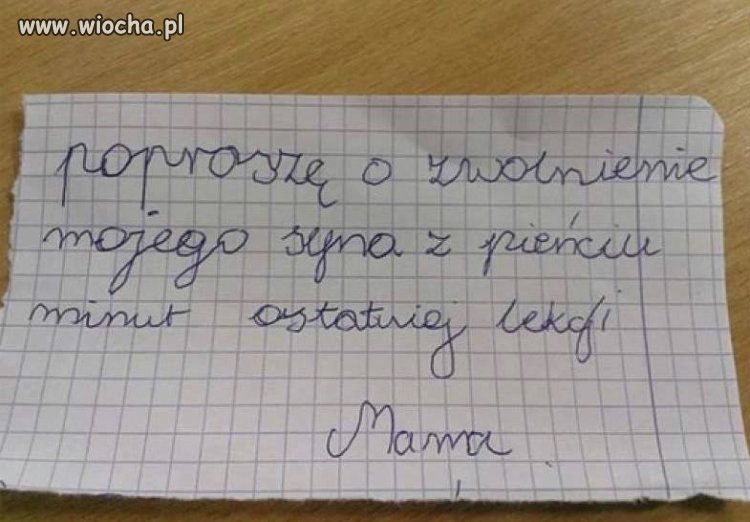 www.wiocha.pl
poproszę o zwolnienie
mojego syna z pieńciu
minut ostatniej lekcji
Mama